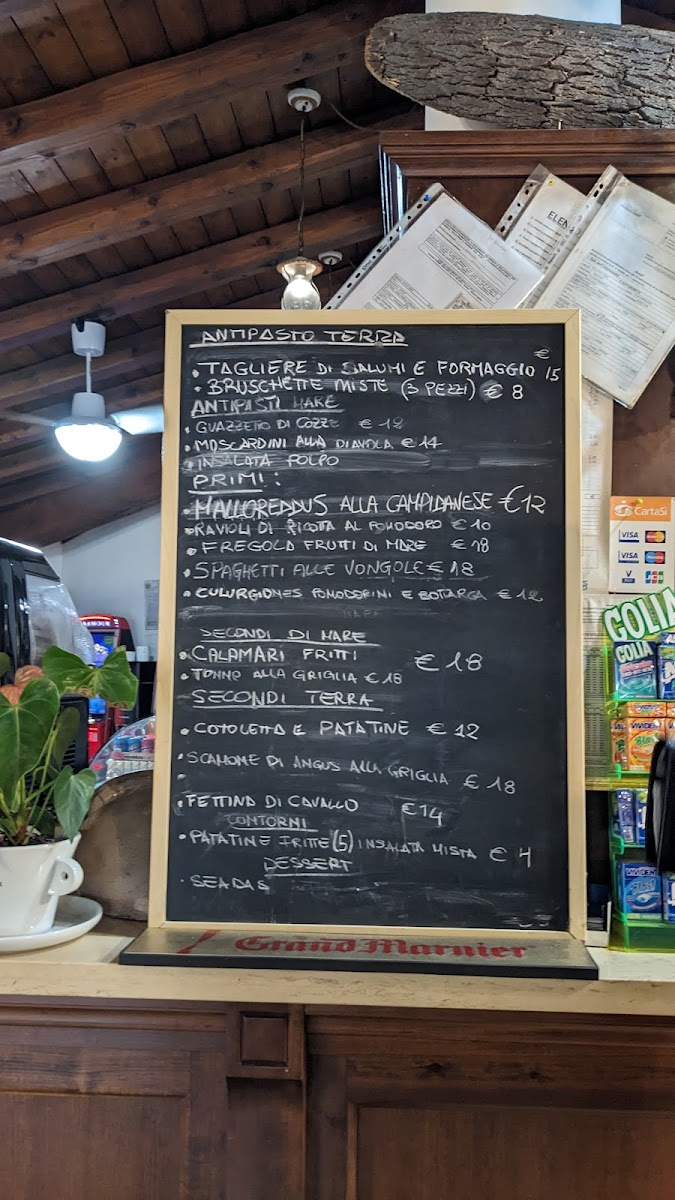 ANTIPASTO TERRA
• TAGLIERE DI SALUMI E FORMAGGIO € 15
• BRUSCHETTE MISTE (3 PEZZI) € 8
ANTIPASTI MARE
• GUAZZETTO DI COZZE € 12
• MOSCARDINI ALLA DIAVOLA € 14
• INSALATA POLPO
PRIMI:
• MALLOREDDUS ALLA CAMPIDANESE €12
• RAVIOLI DI RICOTTA AL POMODORO € 10
• FREGOLA FRUTTI DI MARE € 18
• SPAGHETTI ALLE VONGOLE € 18
• CULURGIONES POMODORINI E BOTTARGA € 12
SECONDI DI MARE
• CALAMARI FRITTI € 18
• TONNO ALLA GRIGLIA € 18
SECONDI TERRA
• COTOLETTA E PATATINE € 12
• SCAMONE DI ANGUS ALLA GRIGLIA € 18
• FETTINA DI CAVALLO €14
CONTORNI
• PATATINE FRITTE (5) INSALATA MISTA € 4
DESSERT
• SEADAS
Grand Marnier
ELEN
CartaSi
VISA
MasterCard
VISA
V
JCB
GOLIA
GOLIA
VIVIDENT
VIVIDENT